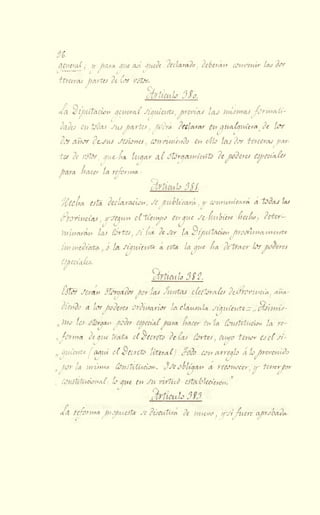 96
general; y para que así quede declarado, deberán convenir las dos
terceras partes de los votos.
Artículo 380.
La Diputacion general siguiente, previas las mismas formali-
dades en todas sus partes, podrá declarar en qualquiera de los
dos años de sus sesiones, conviniendo en ello las dos terceras par-
tes de votos, que ha lugar al otorgamiento de poderes especiales
para hacer la reforma.
Artículo 381.
Hecha esta declaracion, se publicará, y comunicará á todas las
Provincias, y segun el tiempo en que se hubiere hecho, deter-
minarán las Cortes, si ha de ser la Diputacion proximamente
inmediata, ó la siguiente á esta la que ha de traer los poderes
especiales.
Artículo 382.
Estos serán otorgados por las Juntas electorales de Provincia, aña-
diendo á los poderes ordinarios la clausula siguiente: "Asimis-
mo les otorgan poder especial para hacer en la Constitucion la re-
forma de que trata el Decreto de las Cortes, cuyo tenor es el si-
guiente (aqui el Decreto literal) Todo con arreglo á lo prevenido
por la misma Constitucion. Y se obligan á reconocer, y tener por
constitucional, lo que en su virtud establecieren."
Artículo 383.
La reforma propuesta se discutirá de nuevo, y si fuere aprobada